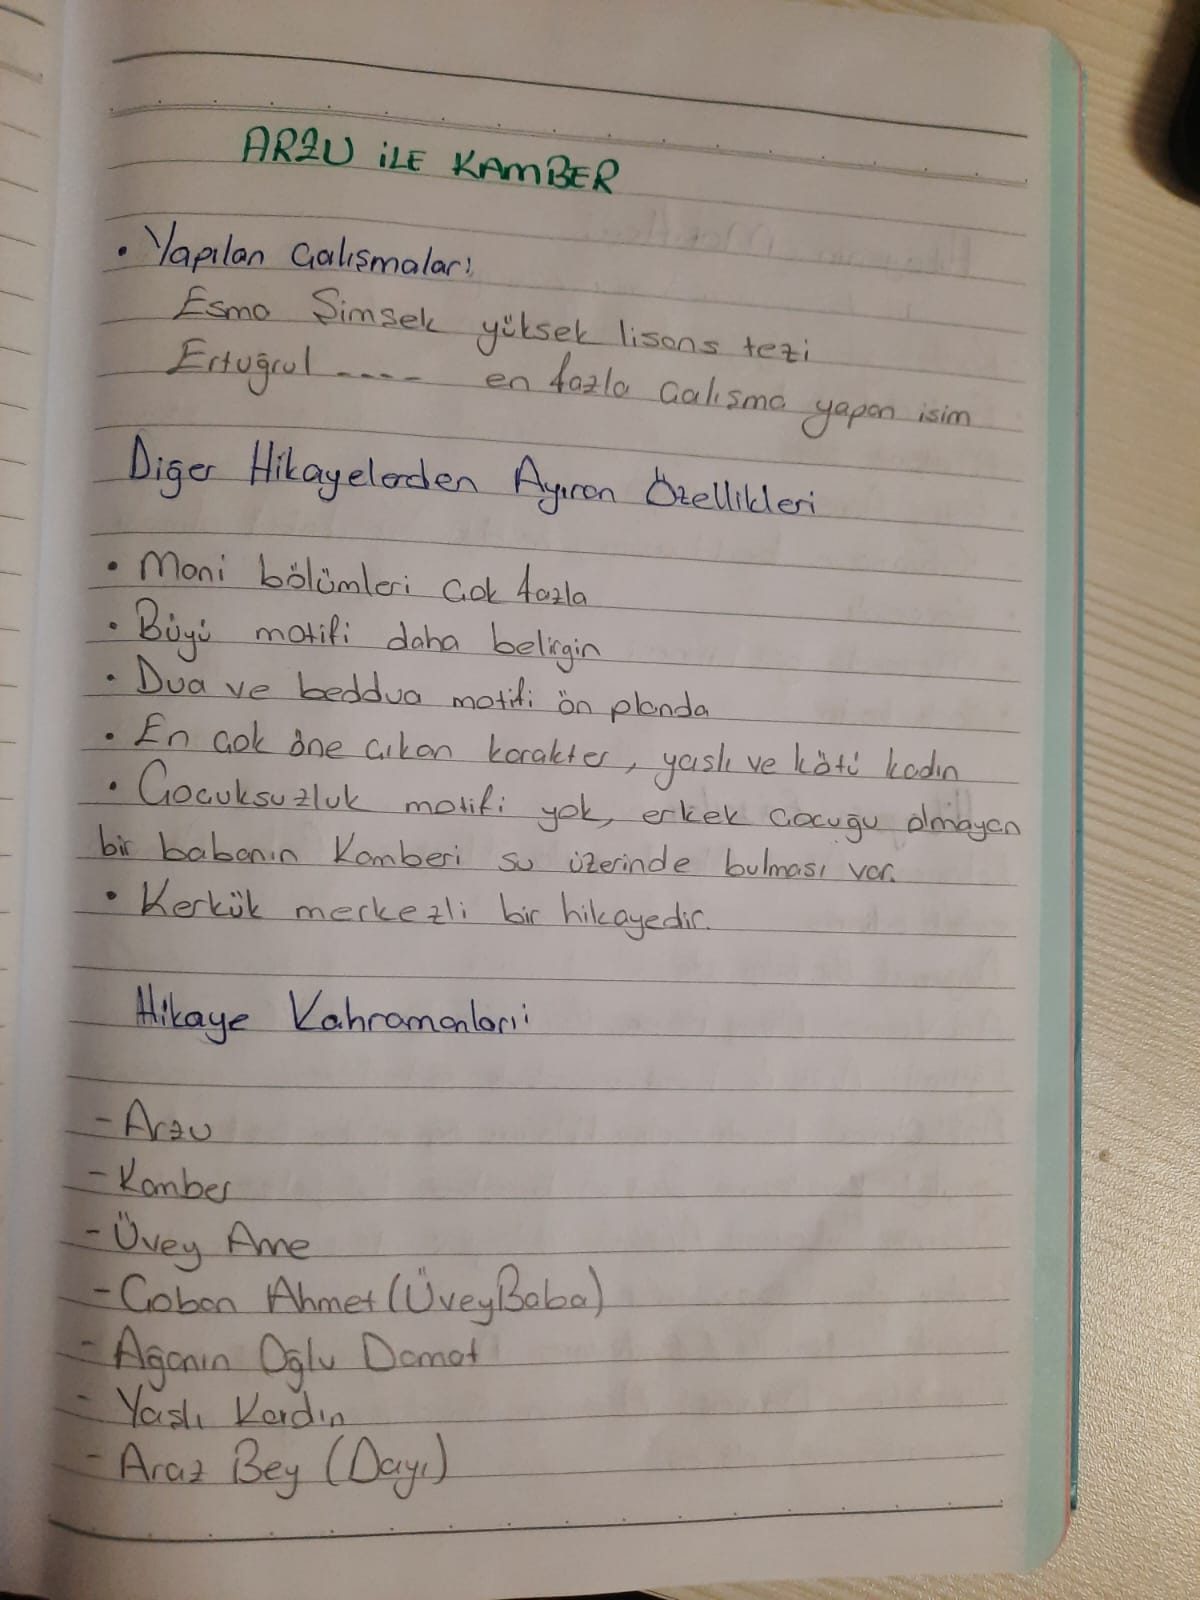 ARZU İLE KAMBER
• Yapılan Çalışmalar:
Esma Şimşek yüksek lisans tezi
Ertuğrul ---- en fazla çalışma yapan isim
Diğer Hikayelerden Ayıran Özellikleri
• Mani bölümleri çok fazla
• Büyü motifi daha belirgin
• Dua ve beddua motifi ön planda
• En çok öne çıkan karakter, yaşlı ve kötü kadın
• Çocuksuzluk motifi yok, erkek çocuğu olmayan
bir babanın Kamberi su üzerinde bulması var.
• Kerkük merkezli bir hikayedir.
Hikaye Kahramanları:
- Arzu
- Kamber
- Üvey Anne
- Çoban Ahmet (Üvey Baba)
- Ağanın Oğlu Damat
- Yaşlı Kardın
- Araz Bey (Dayı)